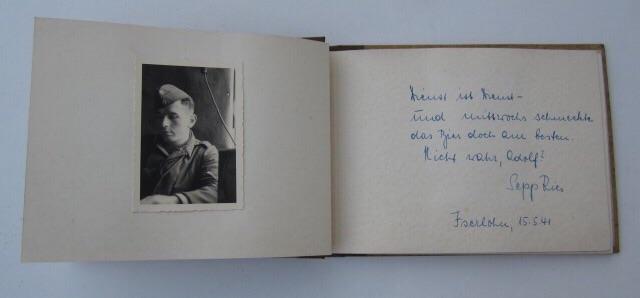 Dienst ist Dienst -
und mittwochs schmeckte
das Bier doch am besten.
Nicht wahr, Adolf?
Sepp Ries
Iserlohn, 15.5.41